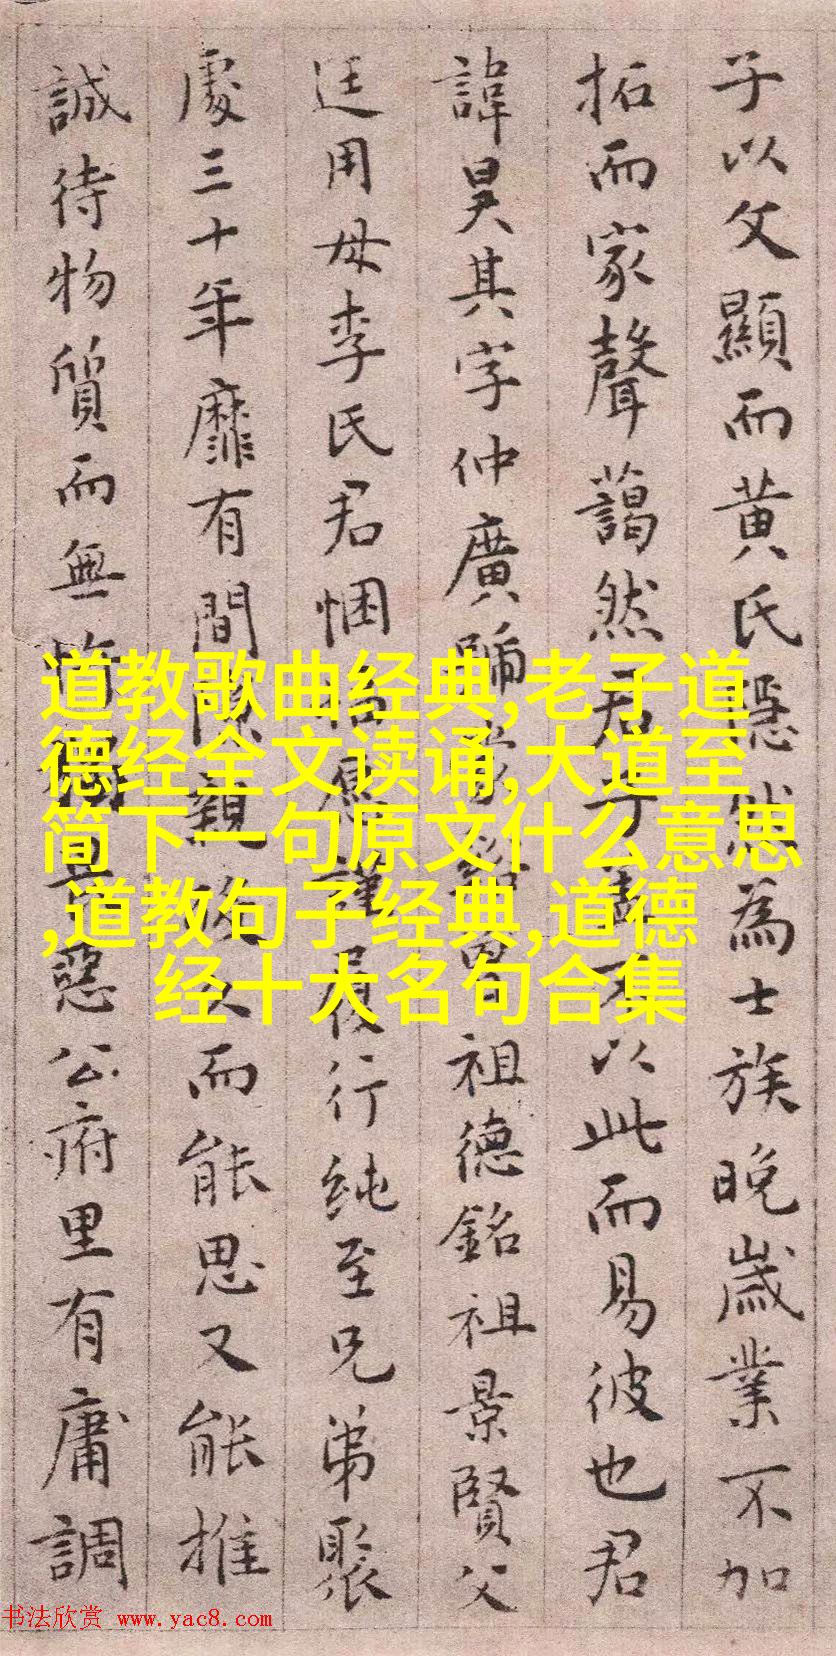 子以文顯而黄氏隱然為士族晚歲業不加
拓而家聲藹然君子不以此而易彼也君
諱昊其字仲廣號祖德銘祖景賢父
廷用母李氏君悃謹履行純至兄弟聚
處三十年靡有間隙親而能思又能推
誠待物質而無惡公府里有庸調
道教歌曲经典,老子道
德经全文读诵,大道至
简下一句原文什么意思
,道教句子经典,道德
经十大名句合集
书法欣赏 www.yac8.com